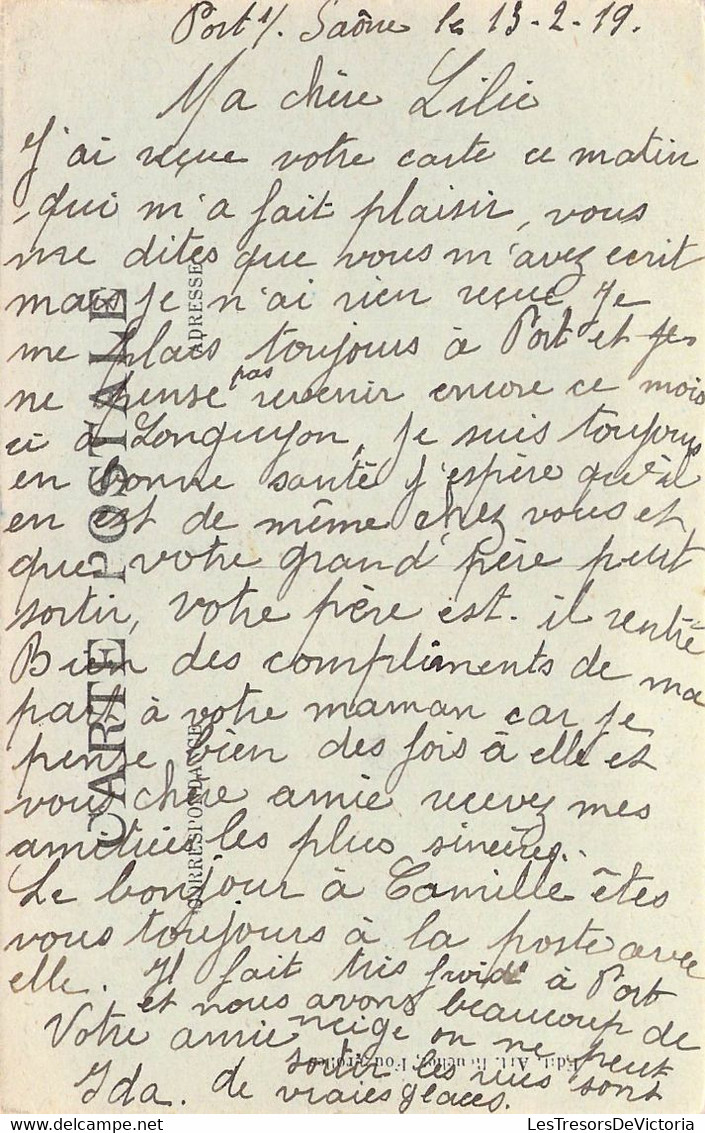 Port s/. Saône le 13-2-19.
Ma chère Lilie
J'ai reçue votre carte ce matin
qui m'a fait plaisir, vous
me dites que vous m'avez ecrit
mais je n'ai rien reçue je
me plais toujours à Port et je
ne pense pas revenir encore ce mois
ci à Longuyon, je suis toujours
en bonne santé j'espère qu'il
en est de même chez vous et
que votre grand' père peut
sortir, votre père est-il rentré
Bien des compliments de ma
part à votre maman car je
pense bien des fois à elle et
vous chère amie recevez mes
amitiées les plus sincères.
Le bonjour à Camille êtes
vous toujours à la poste avec
elle. Il fait très froid à Port
et nous avons beaucoup de
neige on ne peut
sortir les rues sont
de vraies glaces.
Votre amie
Ida.
CARTE POSTALE
CORRESPONDANCE
ADRESSE
LesTresorsDeVictoria.com